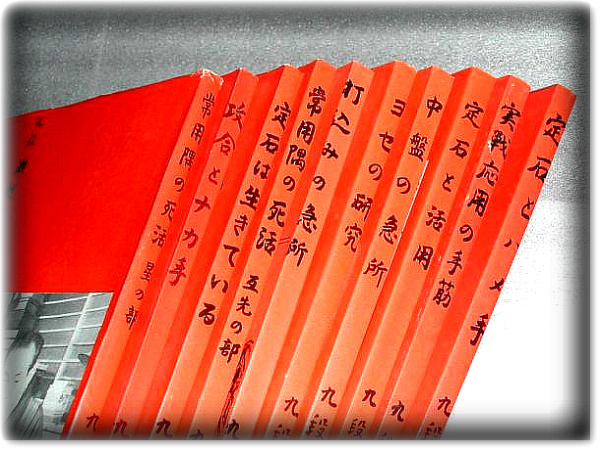 常用隅の死活 星の部 九
攻合とナカ手 九
定石は生きている 九
常用隅の死活 互先の部 九
打込みの急所 九段
ヨセの研究 九段
中盤の急所 九段
定石と活用 九
実戦応用の手筋 九段
定石とハメ手